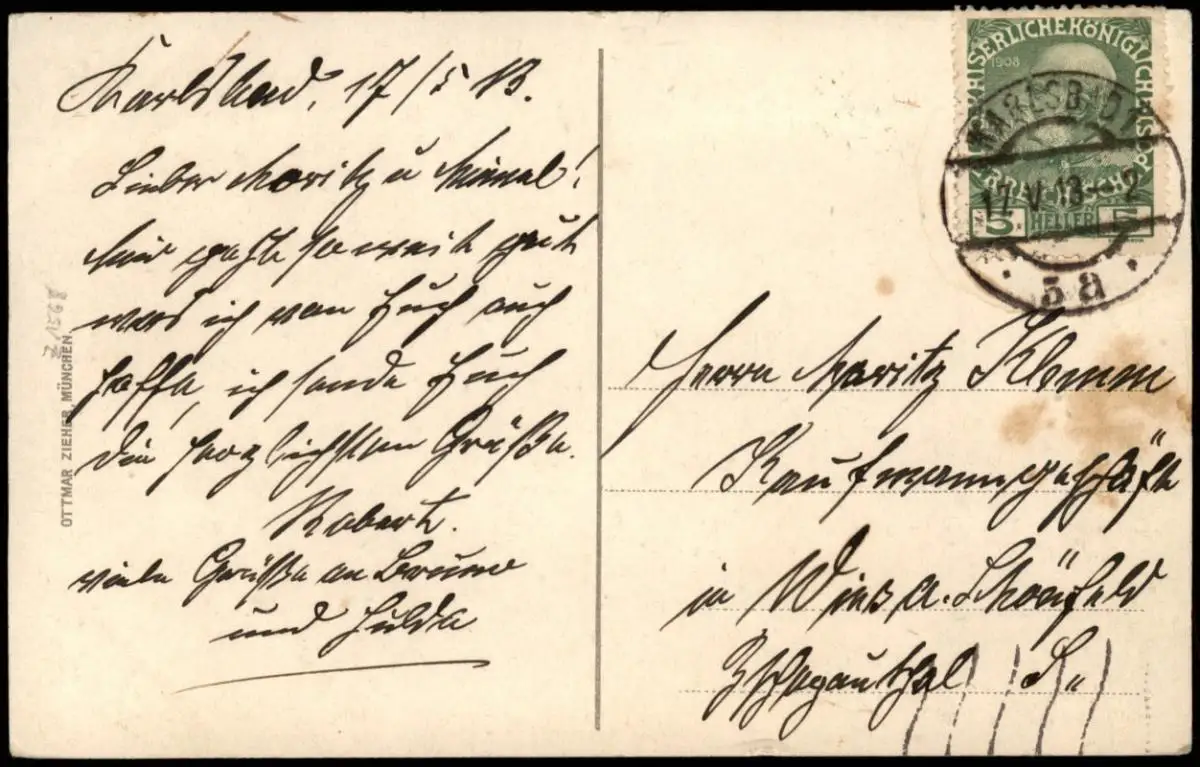 Karlsbad, 17/5 13.
Lieber Moritz u Minnal!
Mir geht soweit gut
was ich von Euch auch
hoffe, ich sende Euch
die herzlichsten Grüße.
Robert.
viele Grüße an Bruno
und Hulda
OTTMAR ZIEHER MÜNCHEN
Z 1568
KAISERLICHE KÖNIGLICHE
1908
5 HELLER 5
KARLSBAD 1
17.V.13 - 2
5a
Herrn Moritz Klemm
Kaufmannsgeschäft
in Wies a. Schönfeld
Zschopauthal S.